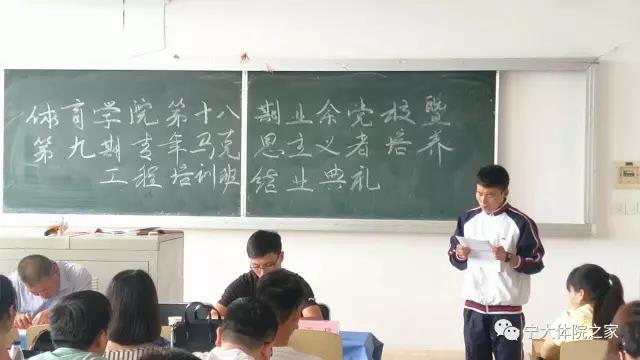 体育学院第十八期业余党校暨
第九期青年马克思主义者培养
工程培训班结业典礼
宁大体院之家